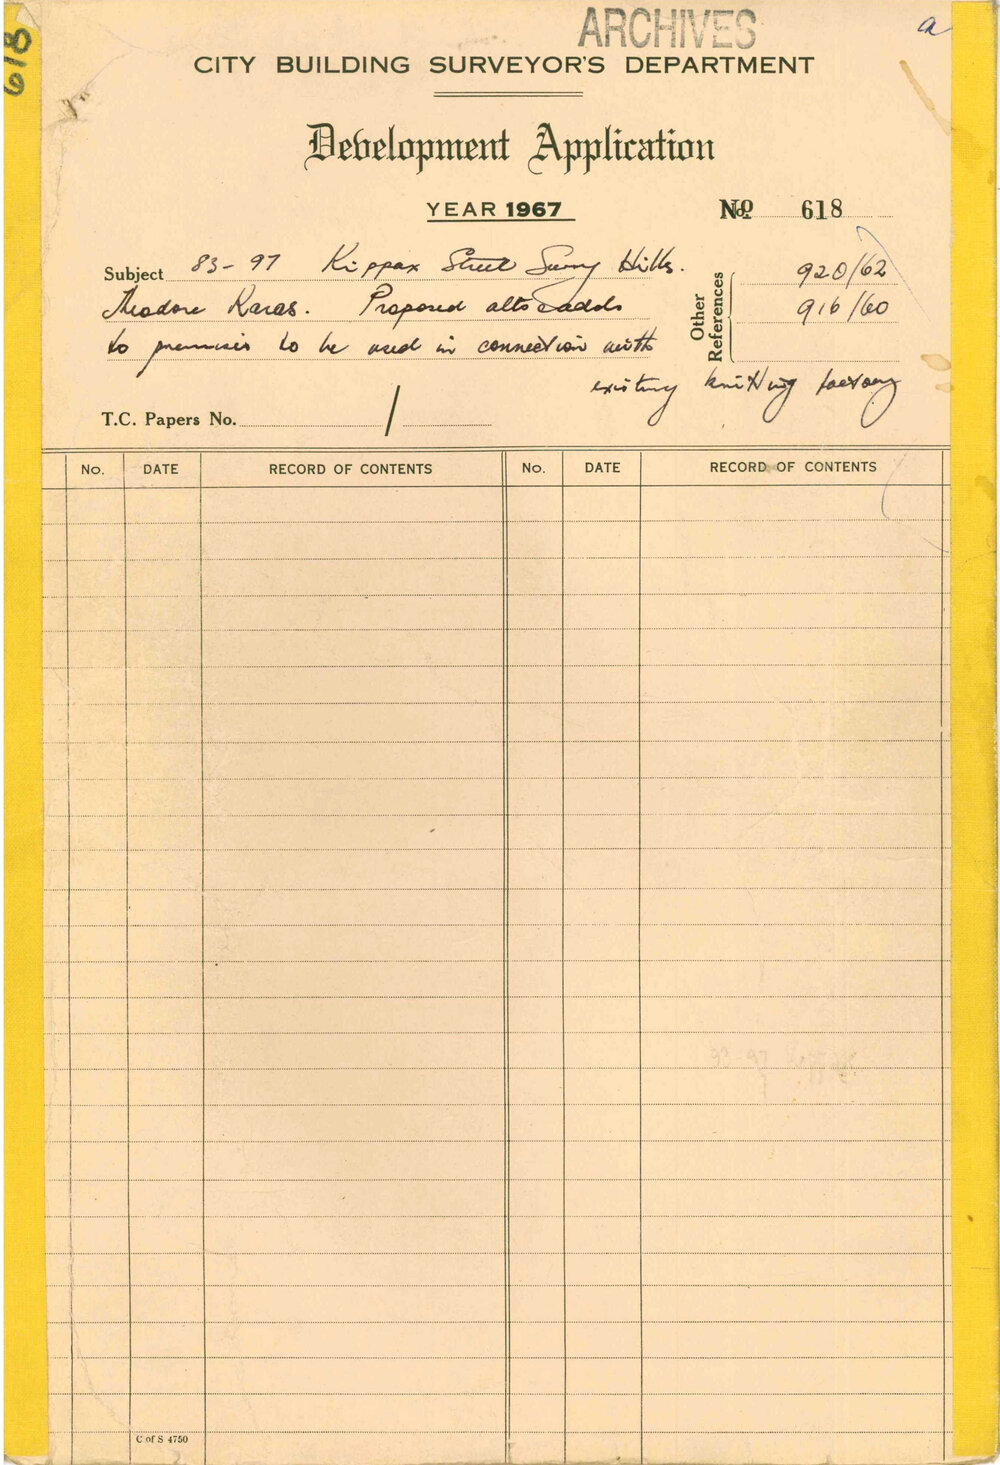 618
ARCHIVES
a
CITY BUILDING SURVEYOR'S DEPARTMENT
Development Application
YEAR 1967
No 618
Subject 83-97 Kippax Street Surry Hills.
Theodore Karas. Proposed alts & adds
to premises to be used in connection with
existing knitting factory
Other References
920/62
916/60
T.C. Papers No. /
No. DATE RECORD OF CONTENTS No. DATE RECORD OF CONTENTS
93-97
C of S 4750